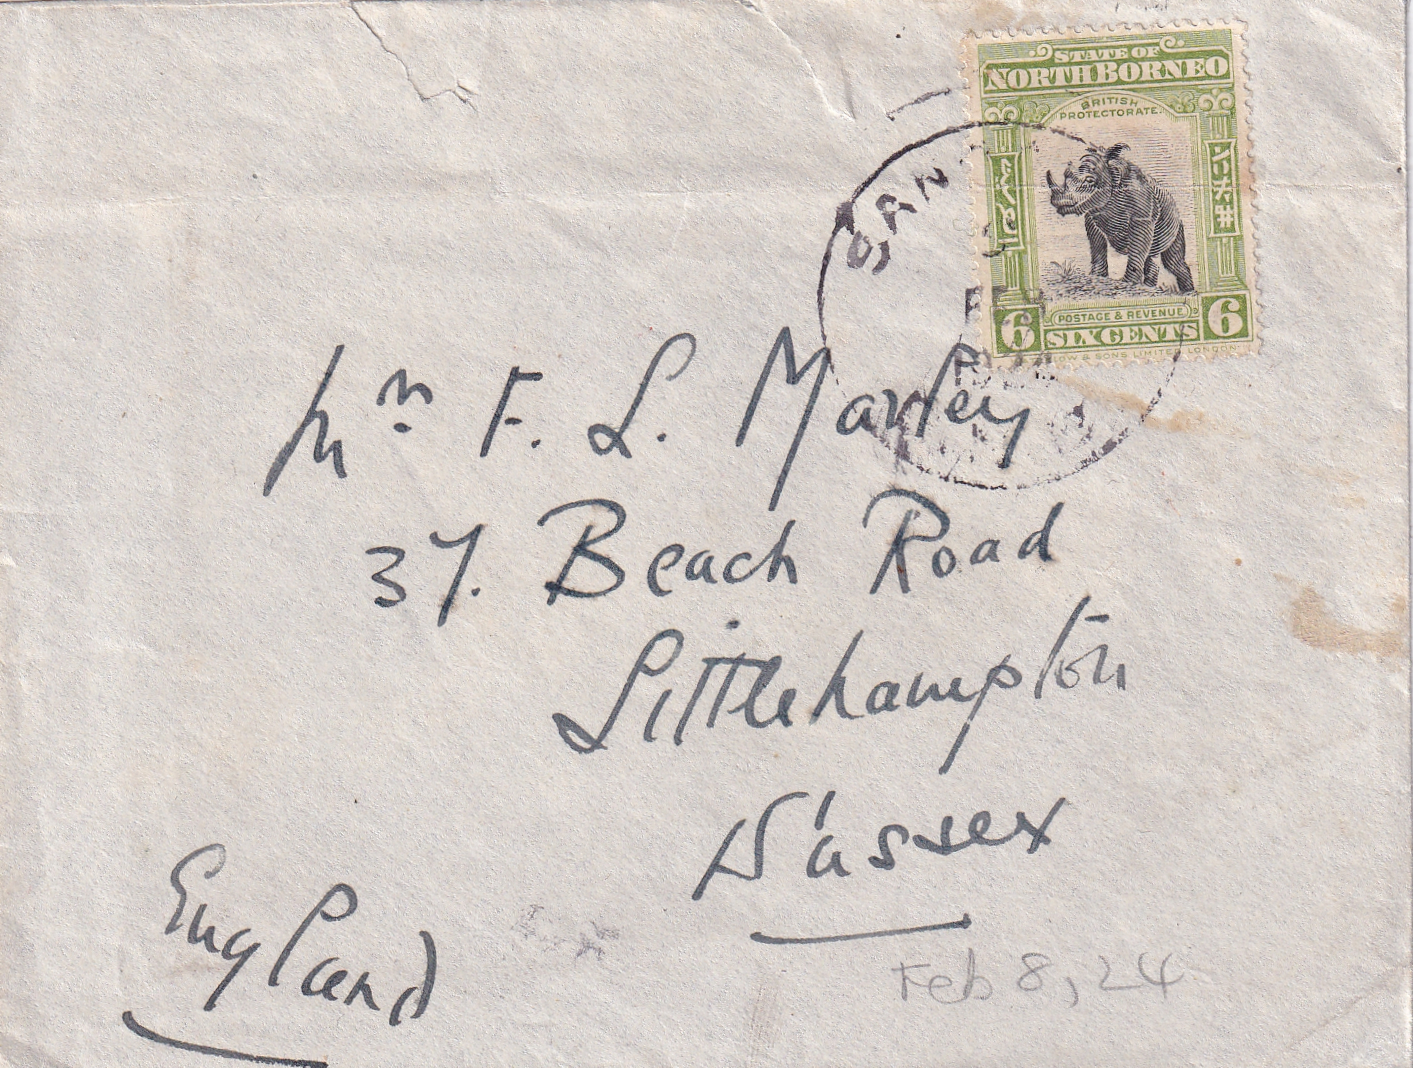 STATE OF
NORTH BORNEO
BRITISH
PROTECTORATE.
POSTAGE & REVENUE
6 SIX CENTS 6
SAN
Mr F. L. Marley
37. Beach Road
Littlehampton
W'assex
England
Feb 8, 24